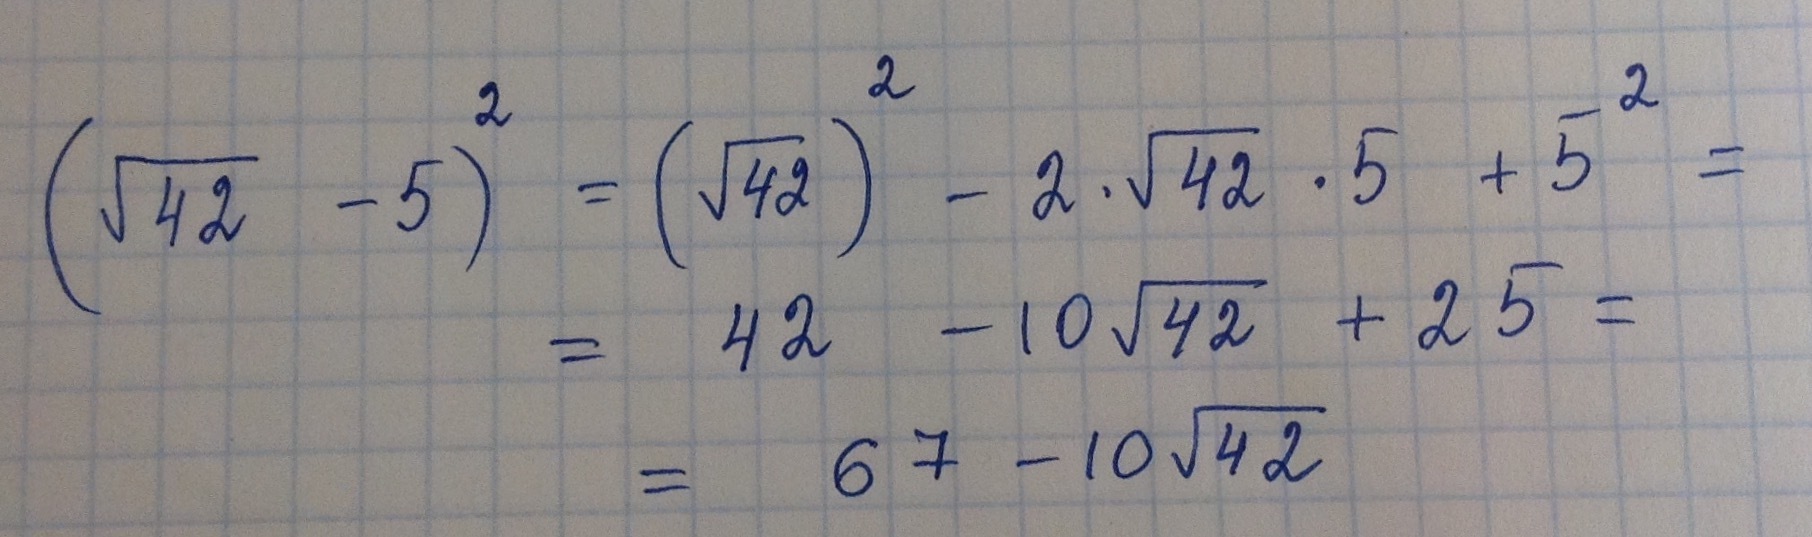 (√42 - 5)² = (√42)² - 2·√42·5 + 5² =
= 42 - 10√42 + 25 =
= 67 - 10√42